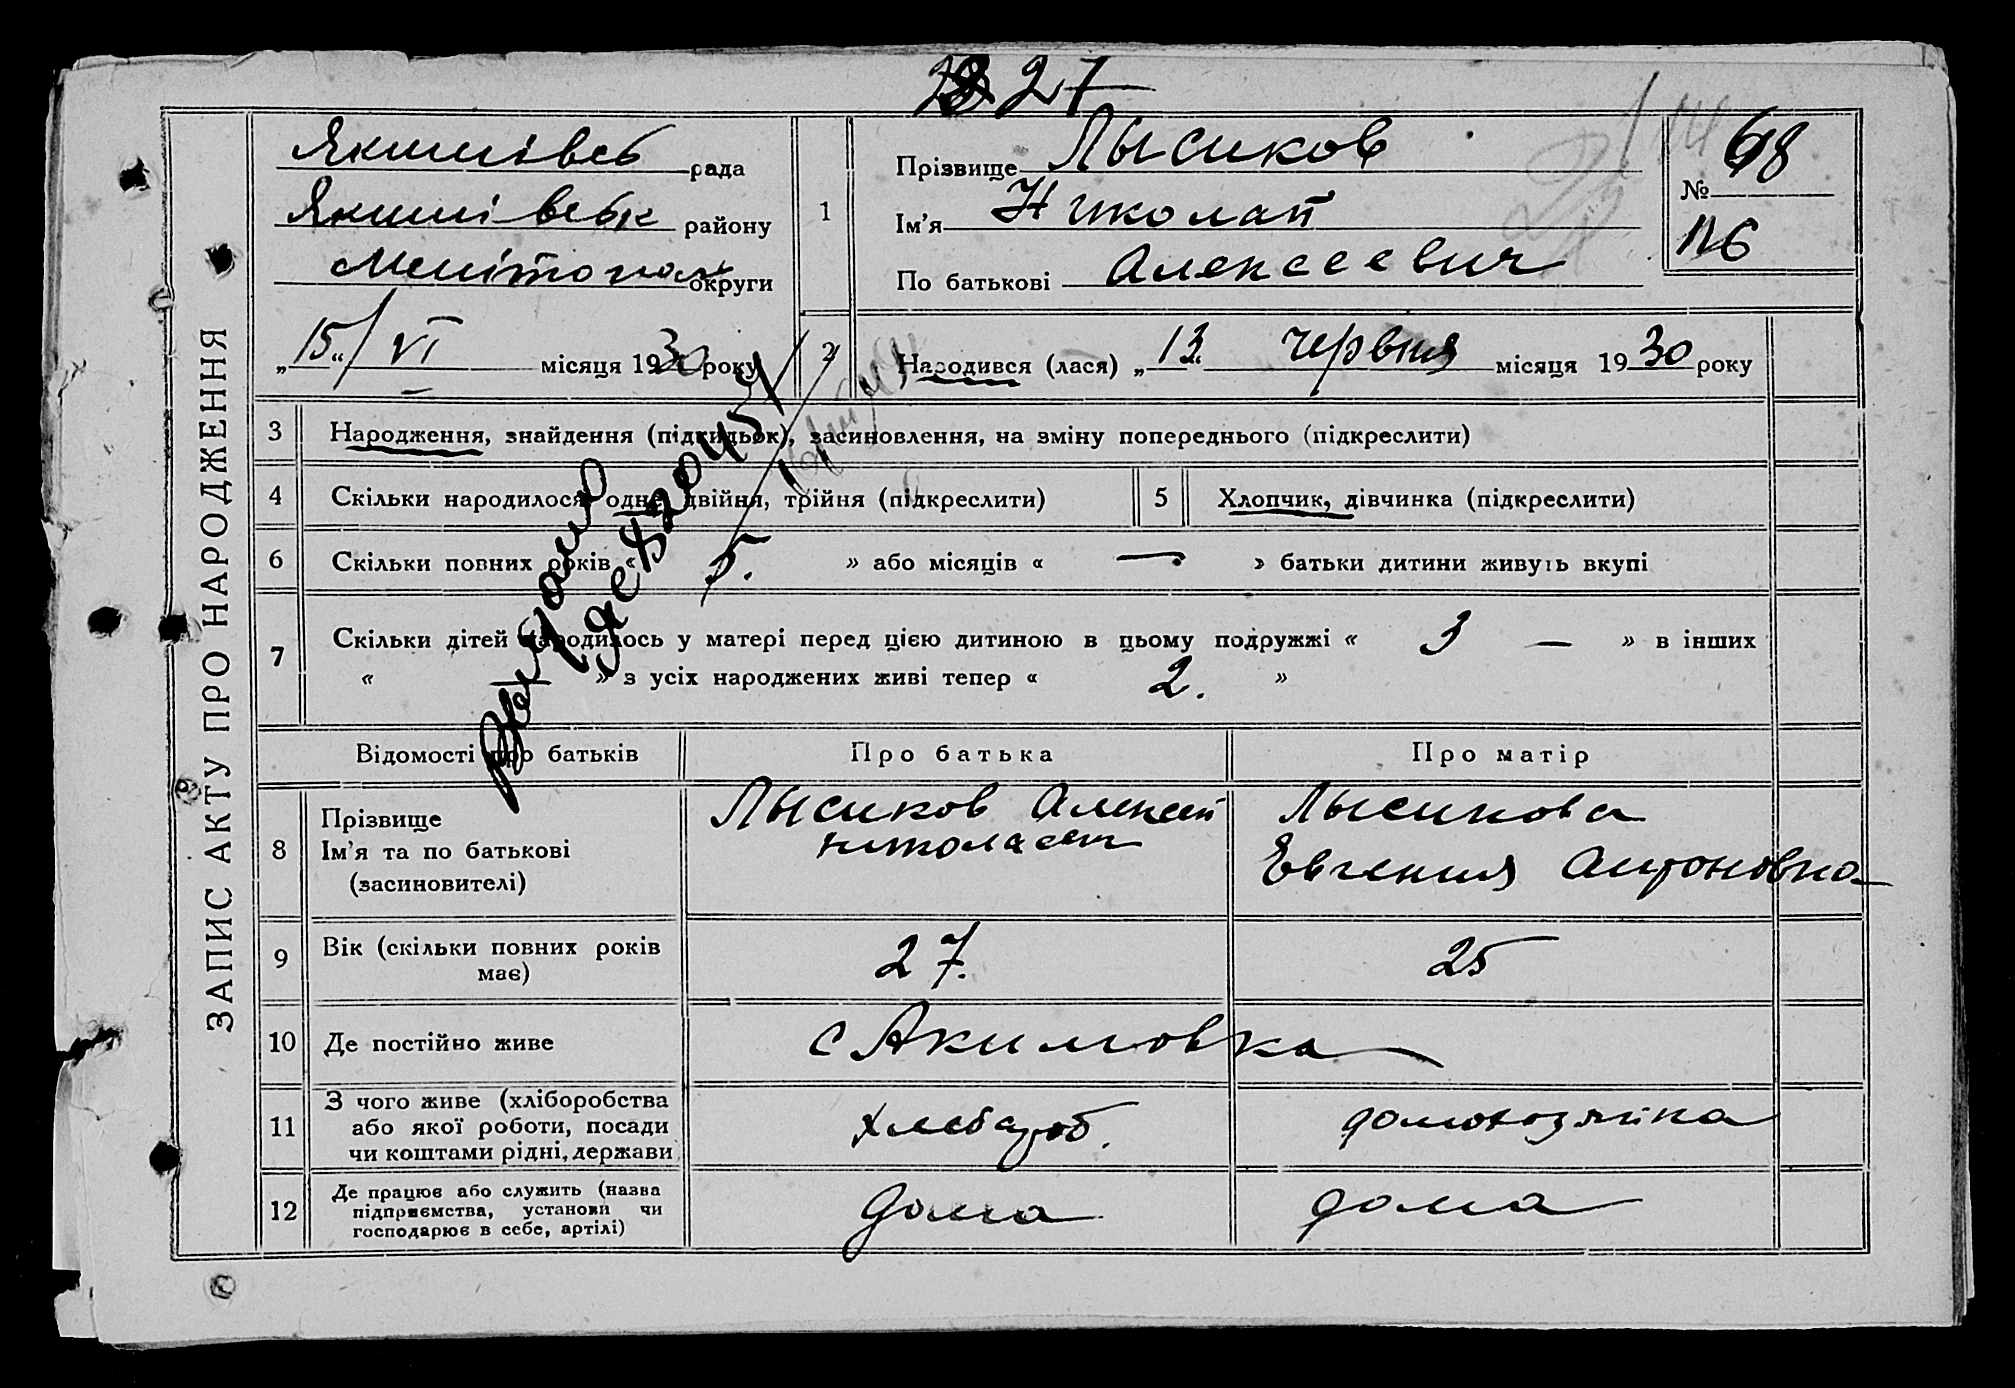 27
ЗАПИС АКТУ ПРО НАРОДЖЕННЯ
Якимівсь рада
Якимівськ району
Мелітопол округи
„15“ VI місяця 1930 року
1
Прізвище Лысиков
Ім'я Николай
По батькові Алексеевич
№ 68
116
2
Народився (лася) „13“ червня місяця 1930 року
3 Народження, знайдення (підкидьок), засиновлення, на зміну попереднього (підкреслити)
4 Скільки народилося: одне, двійня, трійня (підкреслити)
5 Хлопчик, дівчинка (підкреслити)
6 Скільки повних років « 5. » або місяців « — » батьки дитини живуть вкупі
7 Скільки дітей народилось у матері перед цією дитиною в цьому подружжі « 3 — » в інших
« — » з усіх народжених живі тепер « 2. »
Відомості про батьків Про батька Про матір
8 Прізвище
Ім'я та по батькові
(засиновителі)
Лысиков Алексей
Николаев
Лысикова
Евгения Антоновна
9 Вік (скільки повних років
має)
27.
25
10 Де постійно живе с Акимовка
11 З чого живе (хліборобства
або якої роботи, посади
чи коштами рідні, держави
хлебороб.
домохозяйка
12 Де працює або служить (назва
підприємства, установи чи
господарює в себе, артілі)
дома
дома